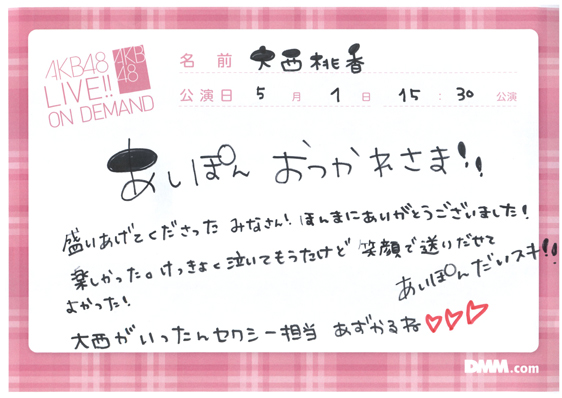 AKB48
LIVE!!
ON DEMAND
AKB
48
名前 大西桃香
公演日 5月1日 15:30 公演
あいぽん おつかれさま!!
盛りあげてくださった みなさん! ほんまにありがとうございました!
楽しかった。けっきょく泣いてもうたけど 笑顔で送りだせて
よかった!
あいぽんだいスキ!!
大西がいったんセクシー担当 あずかるね
DMM.com